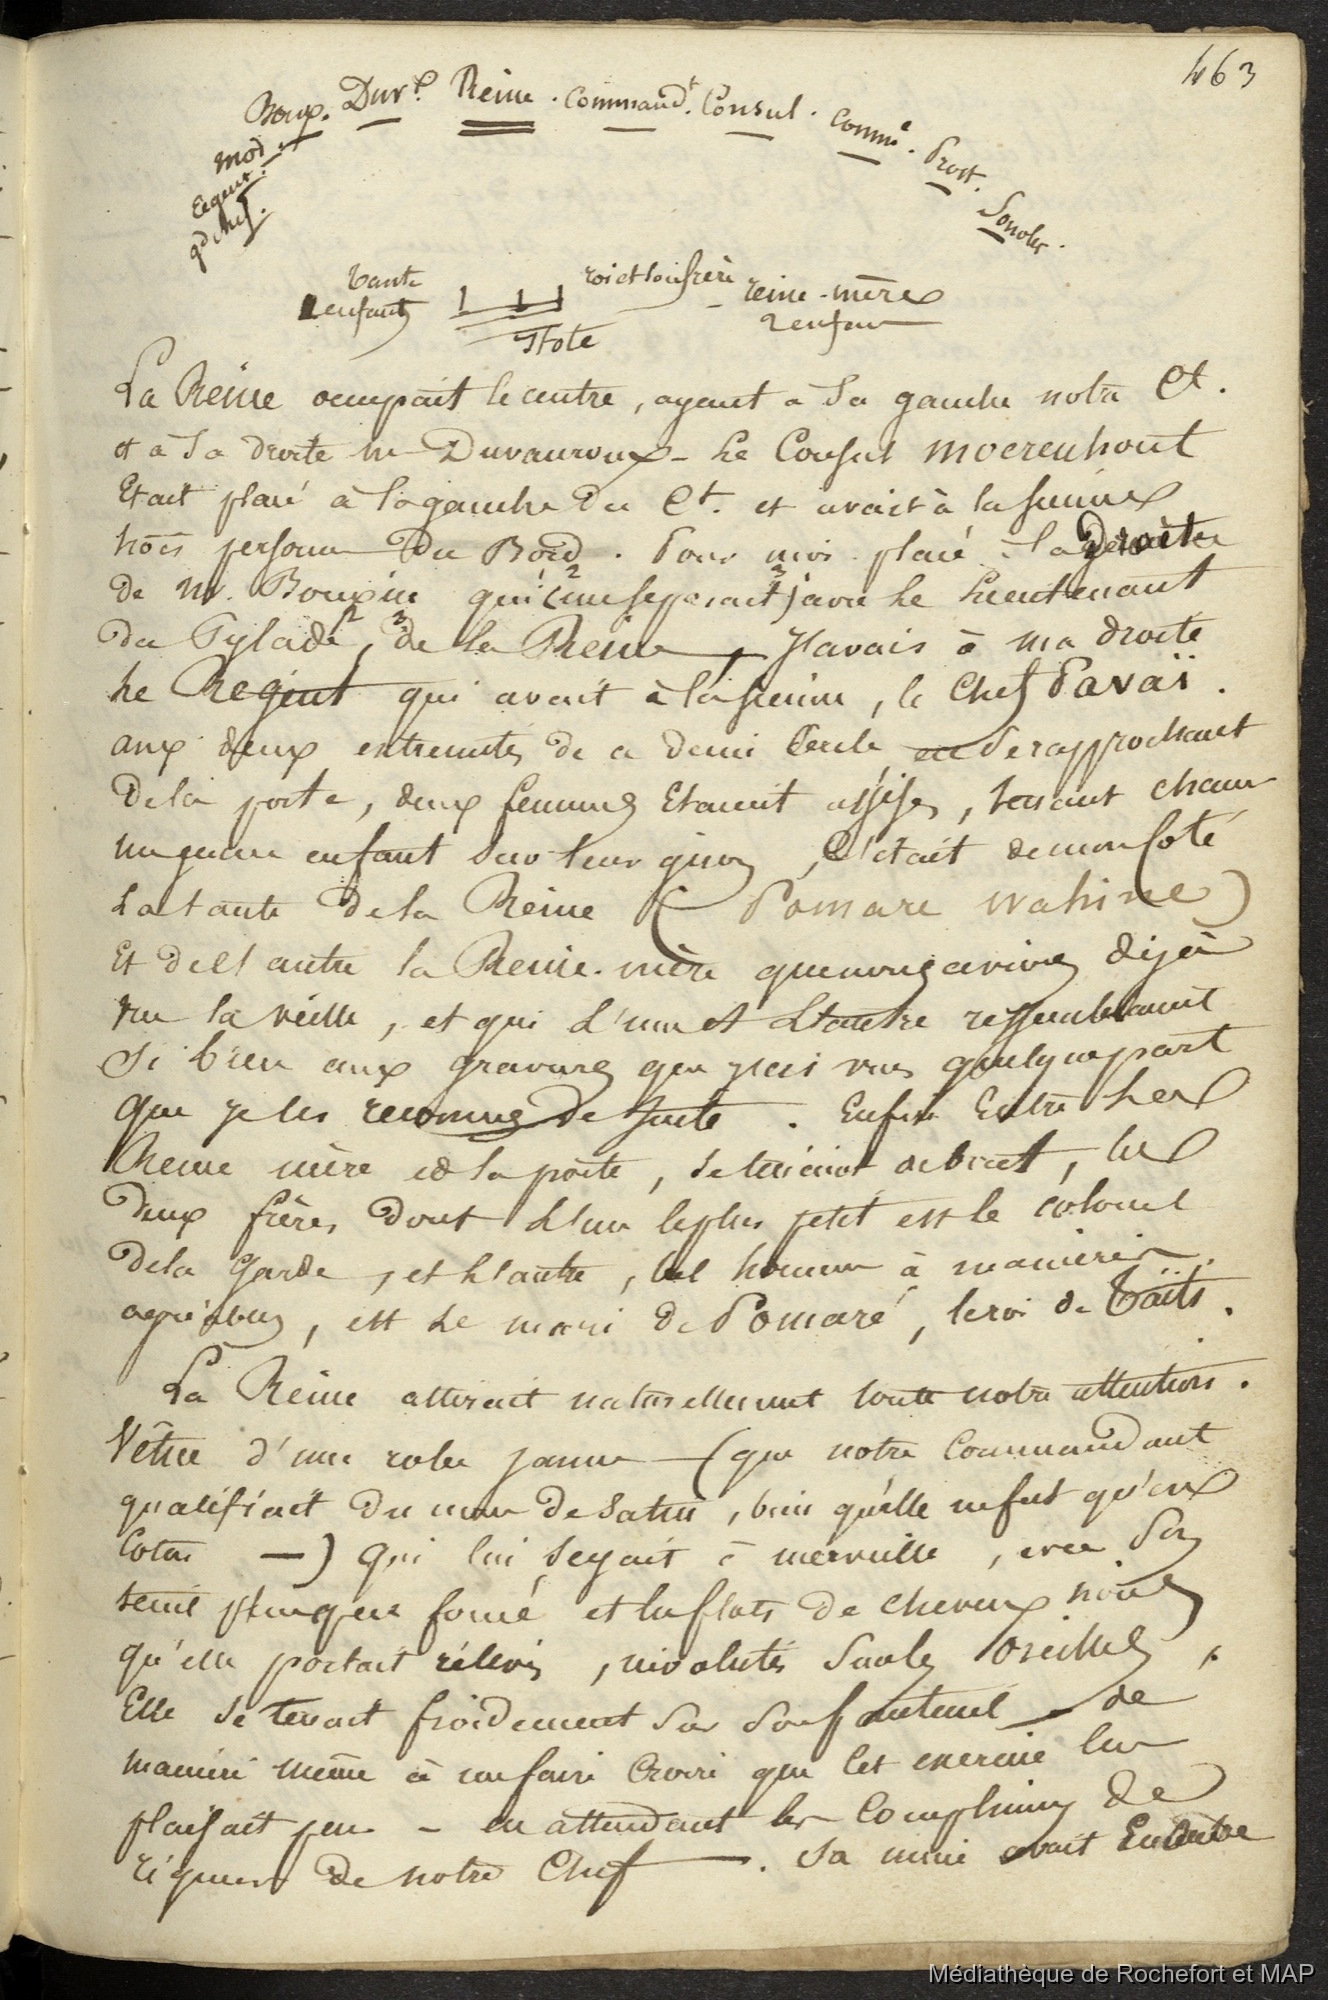 463
gd chef.
Régent.
Mod.
Boup. Duvx. Reine. Command.t Consul. Comm.e. Prost. Souoler.
Tante enfants
roi et son frère
reine-mère 2 enfan
Hote
La Reine occupait le centre, ayant à sa gauche notre Ct.
et à sa droite Mr Duvauroux - Le Consul Moerenhout
Etait placé à la gauche du Ct. et avait à la sienne
trois personnes du Bord. Pour moi placé à la Droite
de Mr. Boupin qui (me séparait) avec le Lieutenant
du Pylade, de la Reine, J'avais à ma droite
le Régent qui avait à la sienne, le Chef Pavaï.
aux deux extremités de ce demi Cercle, se rapprochant
de la porte, deux femmes Etaient assises, tenant chacune
un jeune enfant sur leur giron, C'était de mon côté
La tante de la Reine (Pomare Wahine)
Et de l'autre la Reine-mère que nous avions déjà
vue la veille, et qui l'une et l'autre ressemblaient
si bien aux gravures que j'ai vues quelque part
que je les reconnus de suite. Enfin Entre la
Reine mère et la porte, se tenaient debout, les
deux frères dont l'un le plus petit est le colonel
de la garde, et l'autre, bel homme à manières
agréables, est le mari de Pomaré, le roi de Taïti.
La Reine attirait naturellement toute notre attention.
Vêtue d'une robe jaune (que notre Commandant
qualifiait du nom de satin, bien qu'elle ne fut qu'en
Coton —) qui lui seyait à merveille, avec son
teint presque foncé et les flots de cheveux noirs
qu'elle portait relevés, sur les oreilles,
Elle se tenait froidement sur son fauteuil de
manière même à me faire croire que cet exercice lui
plaisait peu - en attendant les Complimens de
rigueur de notre Chef —. Sa mine avait